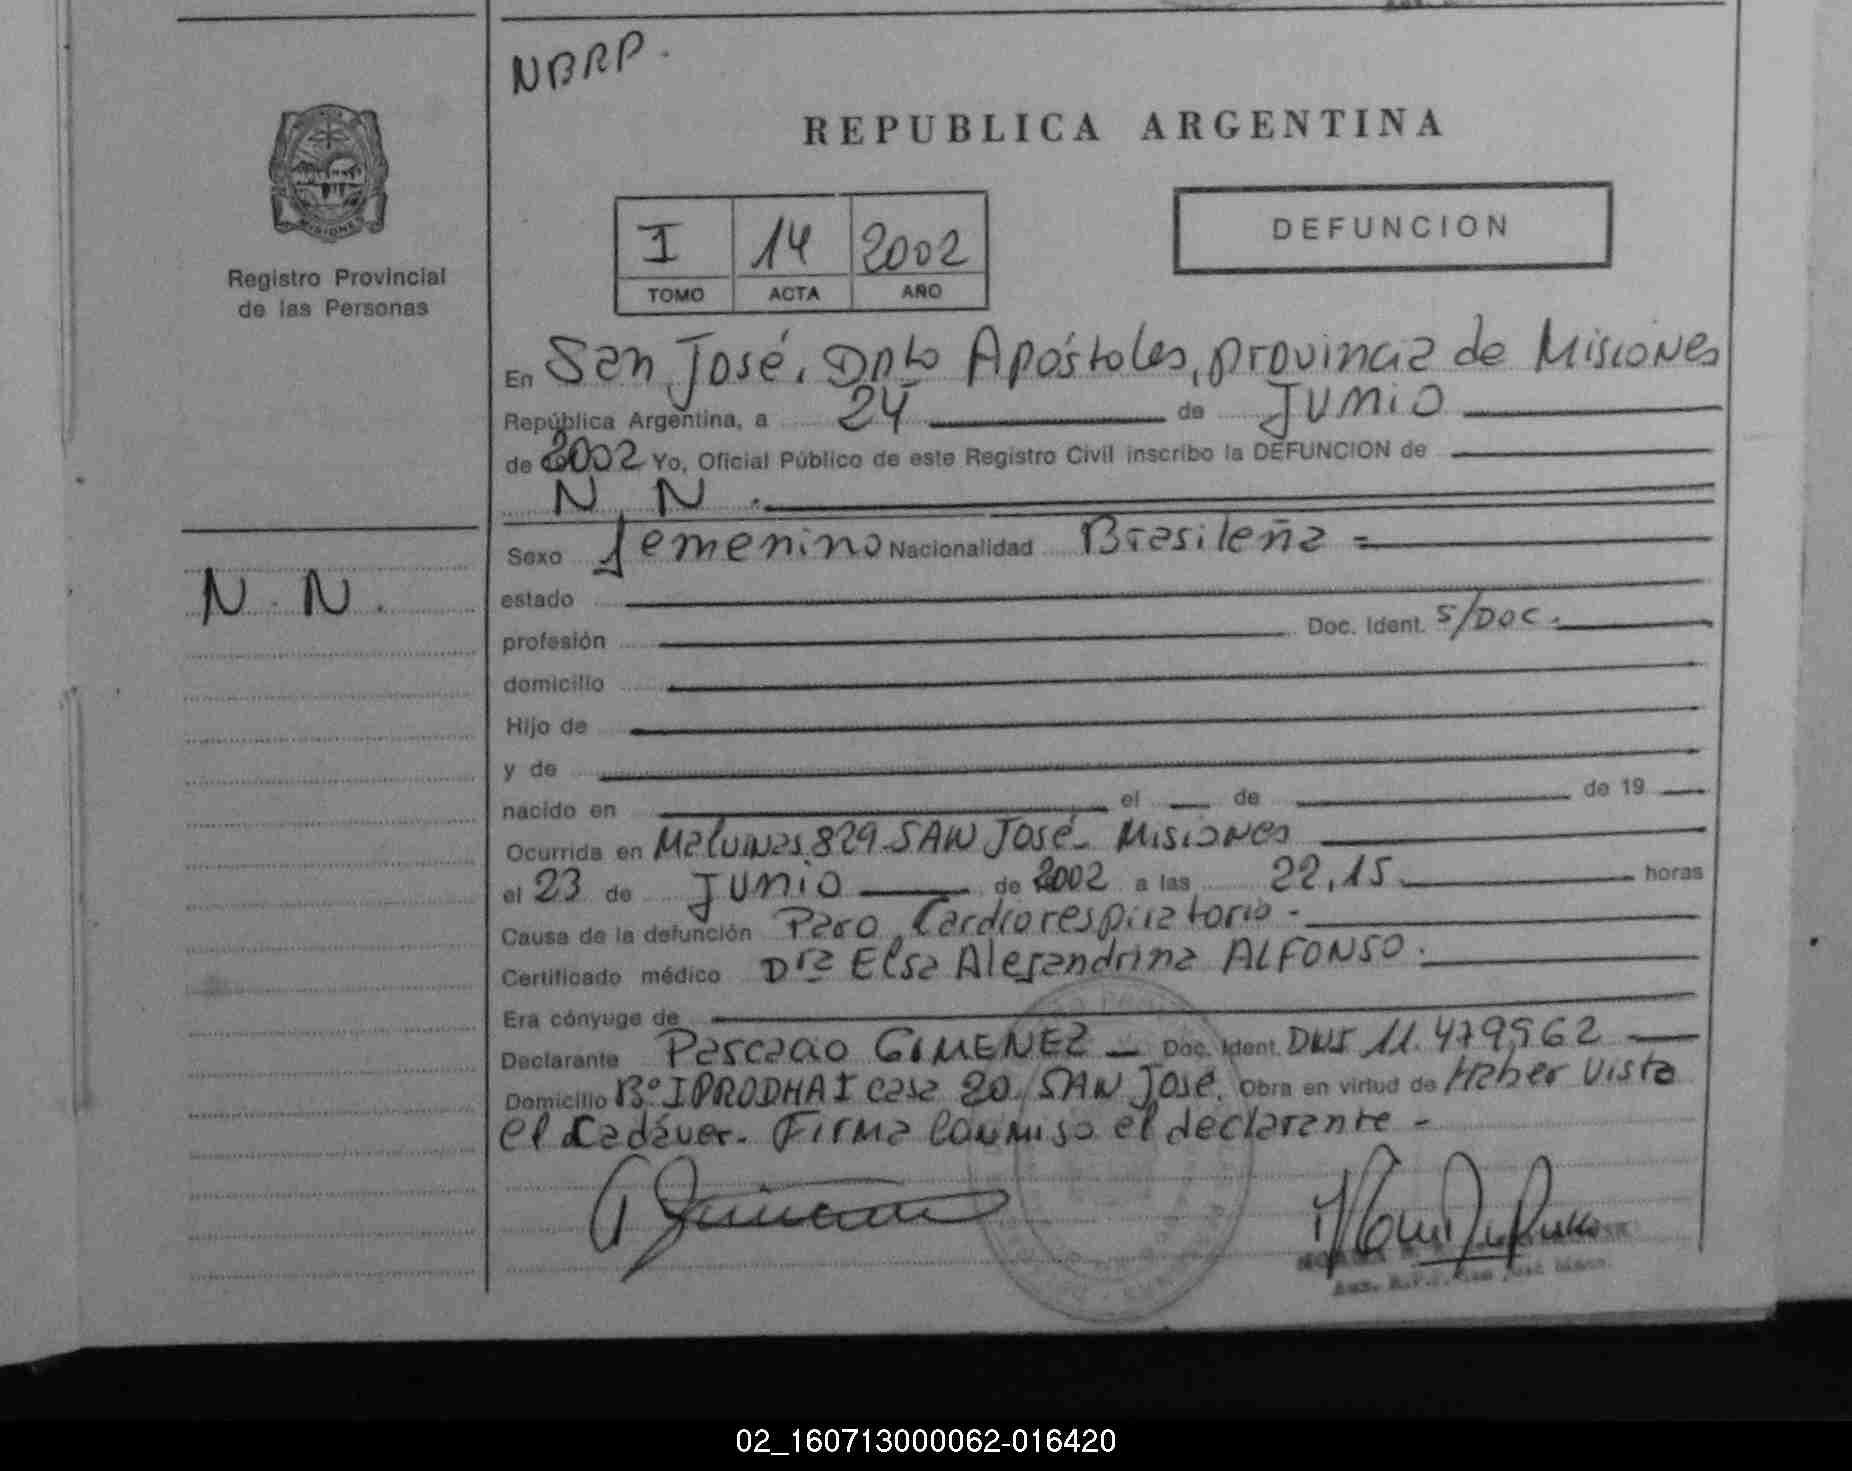 NBRP.
REPUBLICA ARGENTINA
I 14 2002
TOMO ACTA AÑO
DEFUNCION
MISIONES
Registro Provincial
de las Personas
En San José, Dpto Apóstoles, provincia de Misiones
República Argentina, a 24 de Junio
de 2002 Yo, Oficial Público de este Registro Civil inscribo la DEFUNCION de
N. N.
N. N.
Sexo femenino Nacionalidad Brasileña =
estado
profesión Doc. Ident. S/DOC.
domicilio
Hijo de
y de
nacido en el de de 19
Ocurrida en Malvinas 829 SAN José - Misiones
el 23 de Junio de 2002 a las 22,15 horas
Causa de la defunción Paro Cardiorespiratorio -
Certificado médico Dra Elsa Alejandrina ALFONSO.
Era cónyuge de
Declarante GIMENEZ Doc. Ident. DNI 11.479962
Domicilio Bº IPRODHA I casa 20. SAN José. Obra en virtud de Haber visto
el Cadáver. Firma conmigo el declarante -
02_160713000062-016420